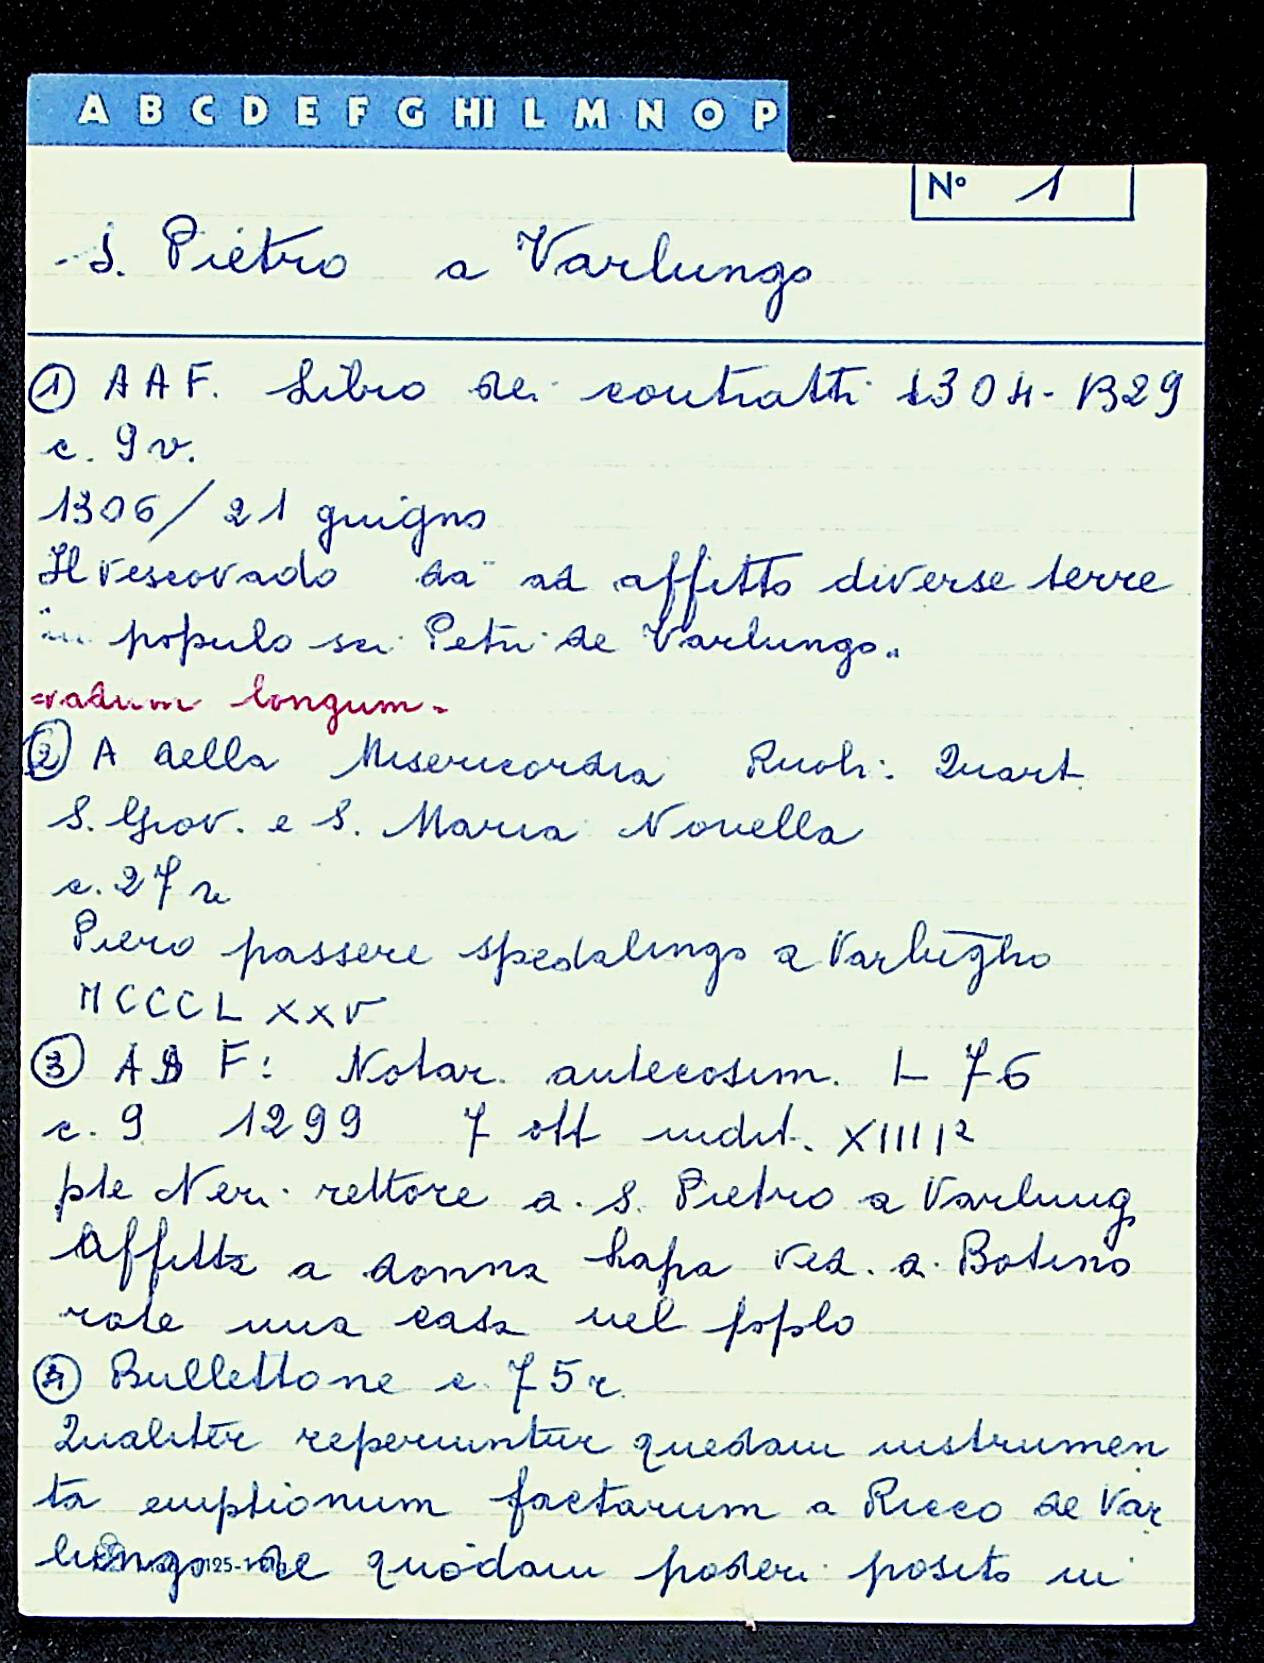 A B C D E F G HI L M N O P
N° 1
S. Pietro a Varlungo
① A A F. Libro dei contratti 1304-1329
c. 9v.
1306/21 giugno
Il vescovado dà ad affitto diverse terre
"in populo sci Petri de Varlungo"
=vadum longum.
② A della Misericordia Ruoli: Quart.
S. Giov. e S. Maria Novella
c. 27 r.
Piero passere spedalingo a Varlugho
MCCCLXXV
③ A S F: Notar. antecosim. L 76
c. 9 1299 7 ott indit. XIIII
pte Neri rettore a. S. Pietro a Varlung
Affitta a donna ved. a. Botino
una casa nel poplo
④ Bullettone c. 75r.
Qualiter reperiuntur quedam instrumen
ta emptionum factarum a Ricco de Var
lungo de quodam poderi posito in